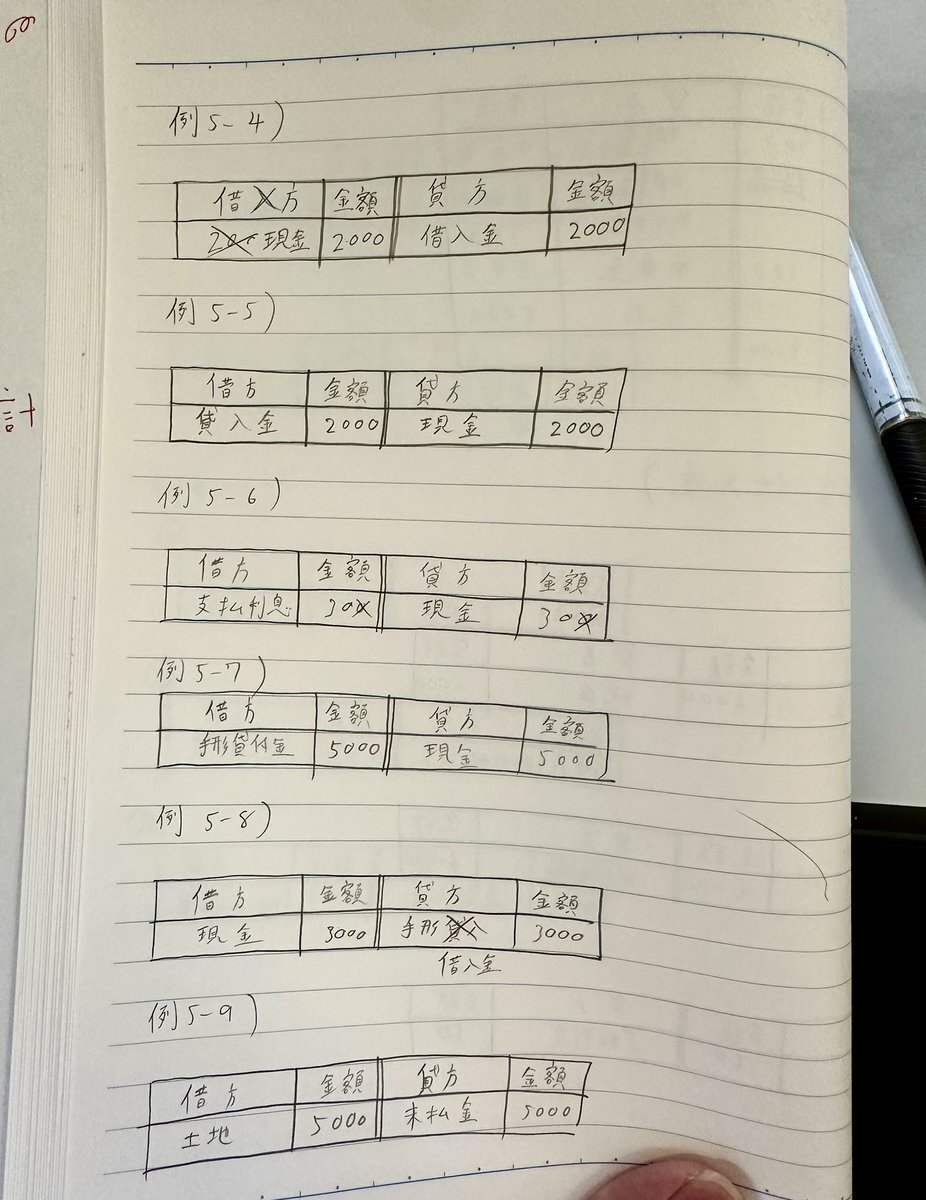 例5-4)
借方 金額 貸方 金額
現金 2000 借入金 2000
例5-5)
借方 金額 貸方 金額
貸入金 2000 現金 2000
例5-6)
借方 金額 貸方 金額
支払利息 30 現金 30
例5-7)
借方 金額 貸方 金額
手形貸付金 5000 現金 5000
例5-8)
借方 金額 貸方 金額
現金 3000 手形 3000
借入金
例5-9)
借方 金額 貸方 金額
土地 5000 未払金 5000
計